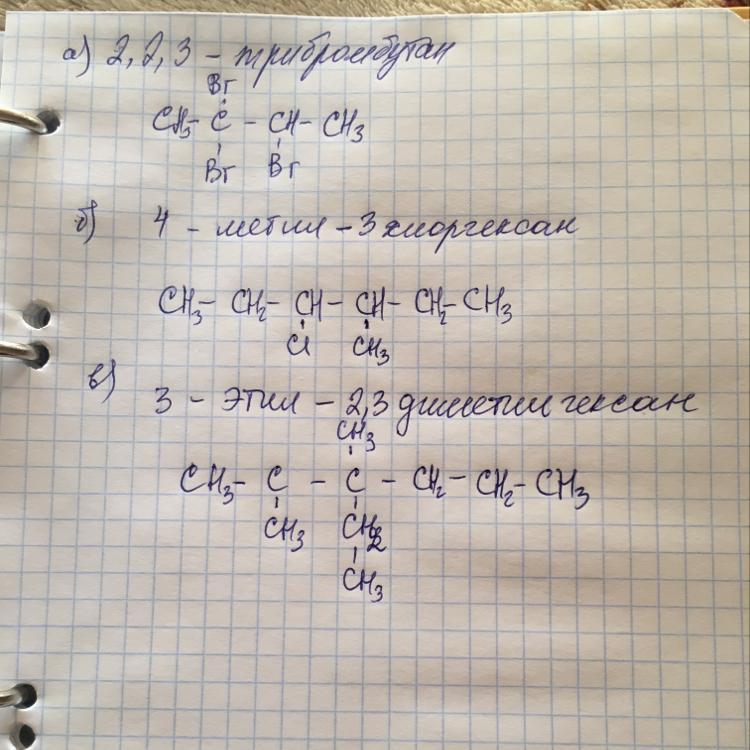 а) 2,2,3 - трибромбутан
Br
CH3- C - CH- CH3
Br Br
б) 4 - метил - 3 хлоргексан
CH3- CH2- CH - CH- CH2- CH3
Cl CH3
в) 3 - этил - 2,3 диметилгексан
CH3
CH3- C - C - CH2- CH2- CH3
CH3 CH2
CH3